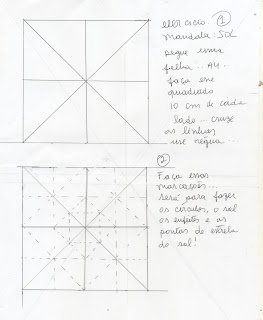 exercicio. ①
mandala: SOL
pegue uma
folha... A4...
faça um
quadrado
10 cm de cada
lado... cruze
as linhas
use régua...
②
Faça essas
marcações...
Será para fazer
os círculos, o sol
os enfeites e as
pontas de estrela
do sol!